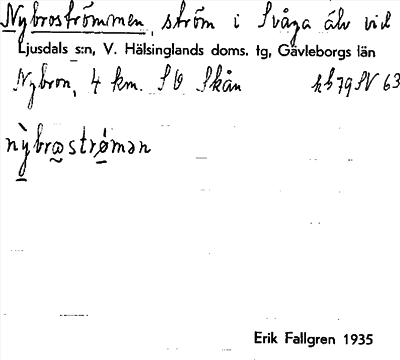 Nybroströmmen, ström i Svåga älv vid
Ljusdals s:n, V. Hälsinglands doms. tg, Gävleborgs län
Nybron, 4 km. SO Skån hb79SV 63
nỳbrω̱strø̱mən
Erik Fallgren 1935